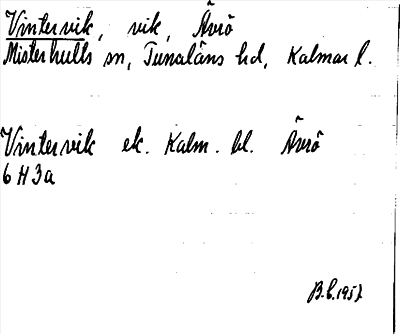 Vintervik, vik, Ävrö
Misterhults sn, Tunaläns hd, Kalmar l.
Vintervik ek. Kalm. bl. Ävrö
6 H 3a
B.L. 1957